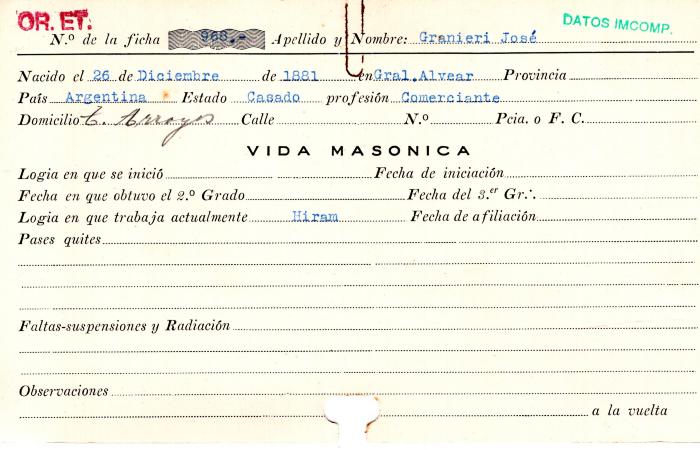 OR. ET.
DATOS IMCOMP.
N.º de la ficha 968.- Apellido y Nombre: Granieri José
Nacido el 26 de Diciembre de 1881 en Gral. Alvear Provincia
País Argentina Estado Casado profesión Comerciante
Domicilio C. Arroyos Calle N.º Pcia. o F. C.
VIDA MASONICA
Logia en que se inició Fecha de iniciación
Fecha en que obtuvo el 2.º Grado Fecha del 3.er Gr∴
Logia en que trabaja actualmente Hiram Fecha de afiliación
Pases quites
Faltas-suspensiones y Radiación
Observaciones
a la vuelta